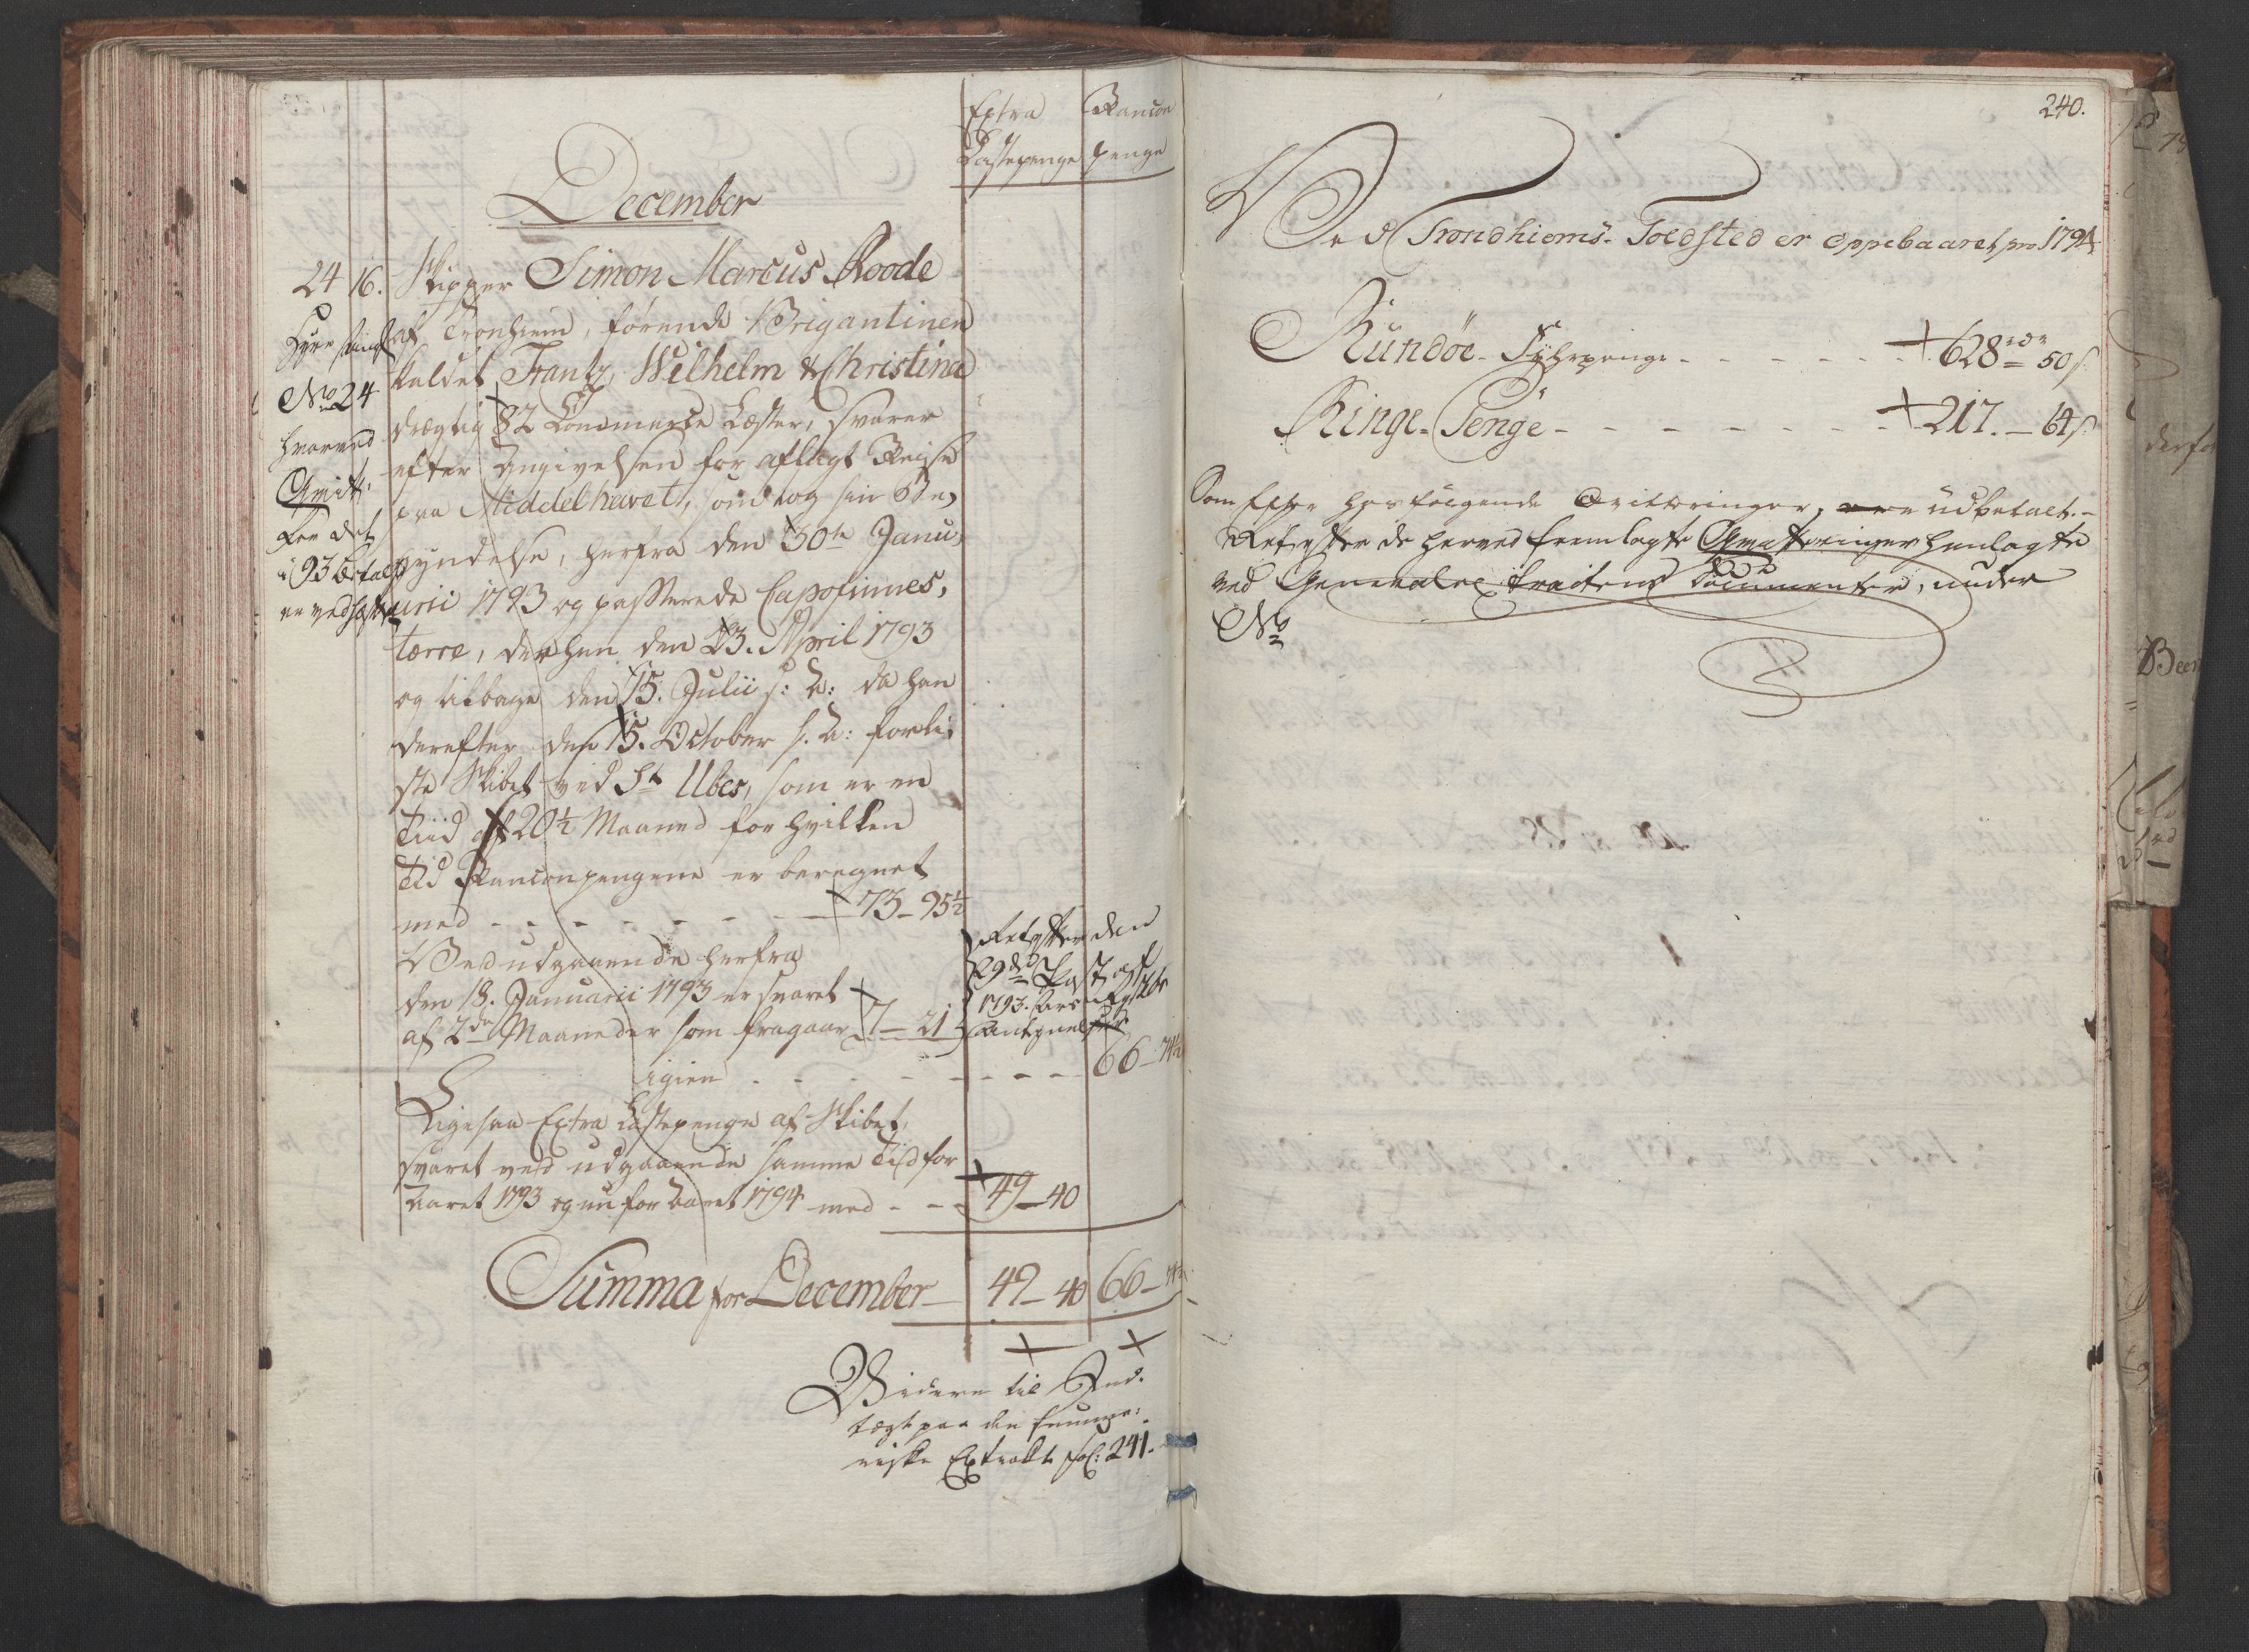 Extra Rancon
Lastepenge penge
December
24 16. Skipper Simon Marcus Roode
af Tronhiem, førende Brigantinen
kaldet Frantz Wilhelm & Christina
drægtig 82 Commerce Læster, svarer
efter Angivelsen for aflagt Reise
paa Middelhavet, som tog sin Be,
gyndelse, herfra den 30te Janu,
arii 1793 og passerede Capofinnes,
tærre, derhen den 23. April 1793
og tilbage den 15. Julii s: A: da han
derefter den 15. October s. A: forli,
ste Skibet ved St Ubes, som er en
Tiid af 20½ Maaned for hvilken
Tid Ranconpengene er beregnet
med - - - - - - - 73 - 95½
Ved udgaaende herfra
den 18. Januarii 1793 er svaret
af 2de Maaneder som fragaar 7 - 21
igien - - - - - - - 66 - 74½
No 24
hvorved
Qvitt.
for det
i 93 betalte
er vedhæftet
29de Post af
1793. Aars
Antegnelser
Ligesaa Extra Lastepenge af Skibet,
svaret ved udgaaende samme Tid for
Aaret 1793 og nu for Aaret 1794 med - - 49 - 40
Summa for December - 49 - 40 66 - 74½
Videre til Ind-
tægt paa den summa-
riske Extract fol: 241.
240.
Ved Trondhiems Toldsted er oppebaaret pro 1794
Rundøe Fyhrpenge - - - - - - 628 rdr 50 s
Ringe-Penge - - - - - - - 217. - 64 s
Som efter hosfølgende Qvitteringer, ere udbetalt.-
de herved fremlagte Qvitteringer henlagte
ved General Extractens Documenter, under
No